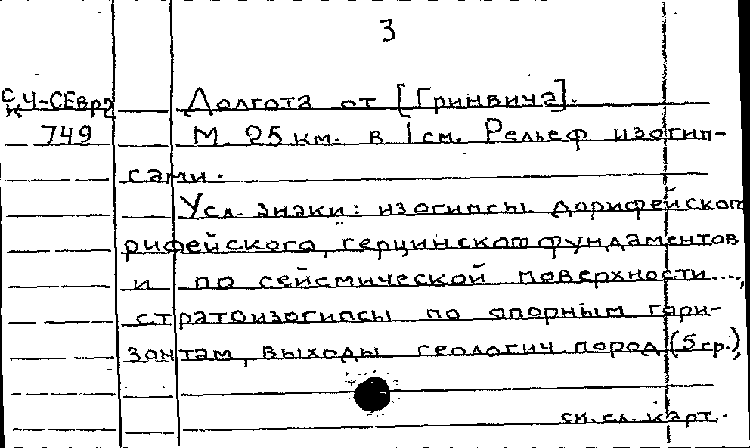 3
С.Ч-СЕвр2 Долгота от [Гринвича].
К
749 М. 25 км. в 1 см. Рельеф изогип-
сами.
Усл. знаки: изогипсы дорифейского
рифейского, герцинского фундаментов
и по сейсмической поверхности...,
стратоизогипсы по опорным гори-
зонтам, выходы геологич. пород (5 гр.),
см. сл. карт.